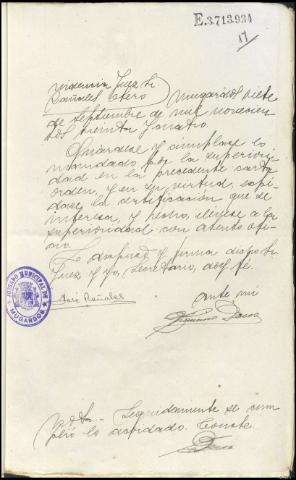 E.3,713,931
17
Providencia Juez Sr
Bañales Otero Mugardos siete
de septiembre de mil novecien
tos treinta y cuatro.
Guárdese y cúmplase lo
mandado por la superiori
dad en la precedente carta
orden, y en su virtud, expí
dase la certificación que se
interesa, y hecho, elévese a la
superioridad con atento ofi
cio.
Lo dispuso y firma dicho Sr
Juez y yo, Secretario, doy fé.
Bañales
ante mi
JUZGADO MUNICIPAL DE
MUGARDOS
Seguidamente se cum
plió lo acordado. Conste.